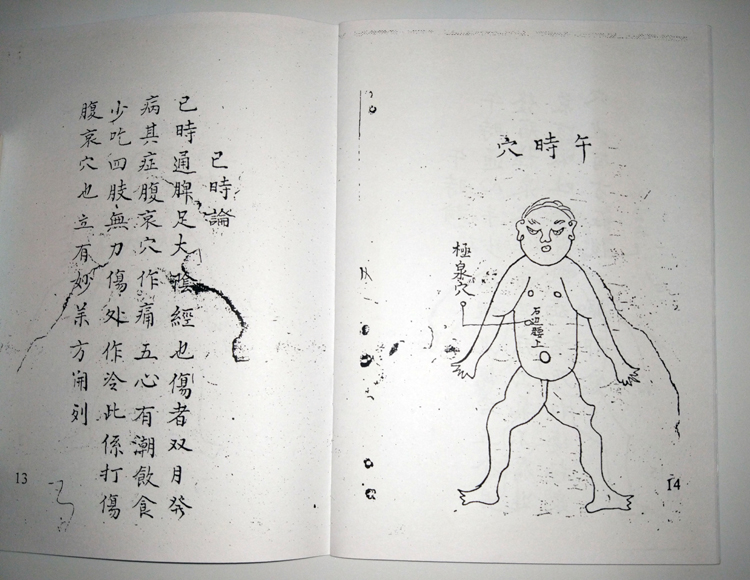 已時論
已時通脾足大陰經也傷者双月發
病其症腹哀穴作痛五心有潮飲食
少吃四肢無力傷处作冷此係打傷
腹哀穴也立有妙药方開列
13
午時穴
極泉穴
右边腰上
14